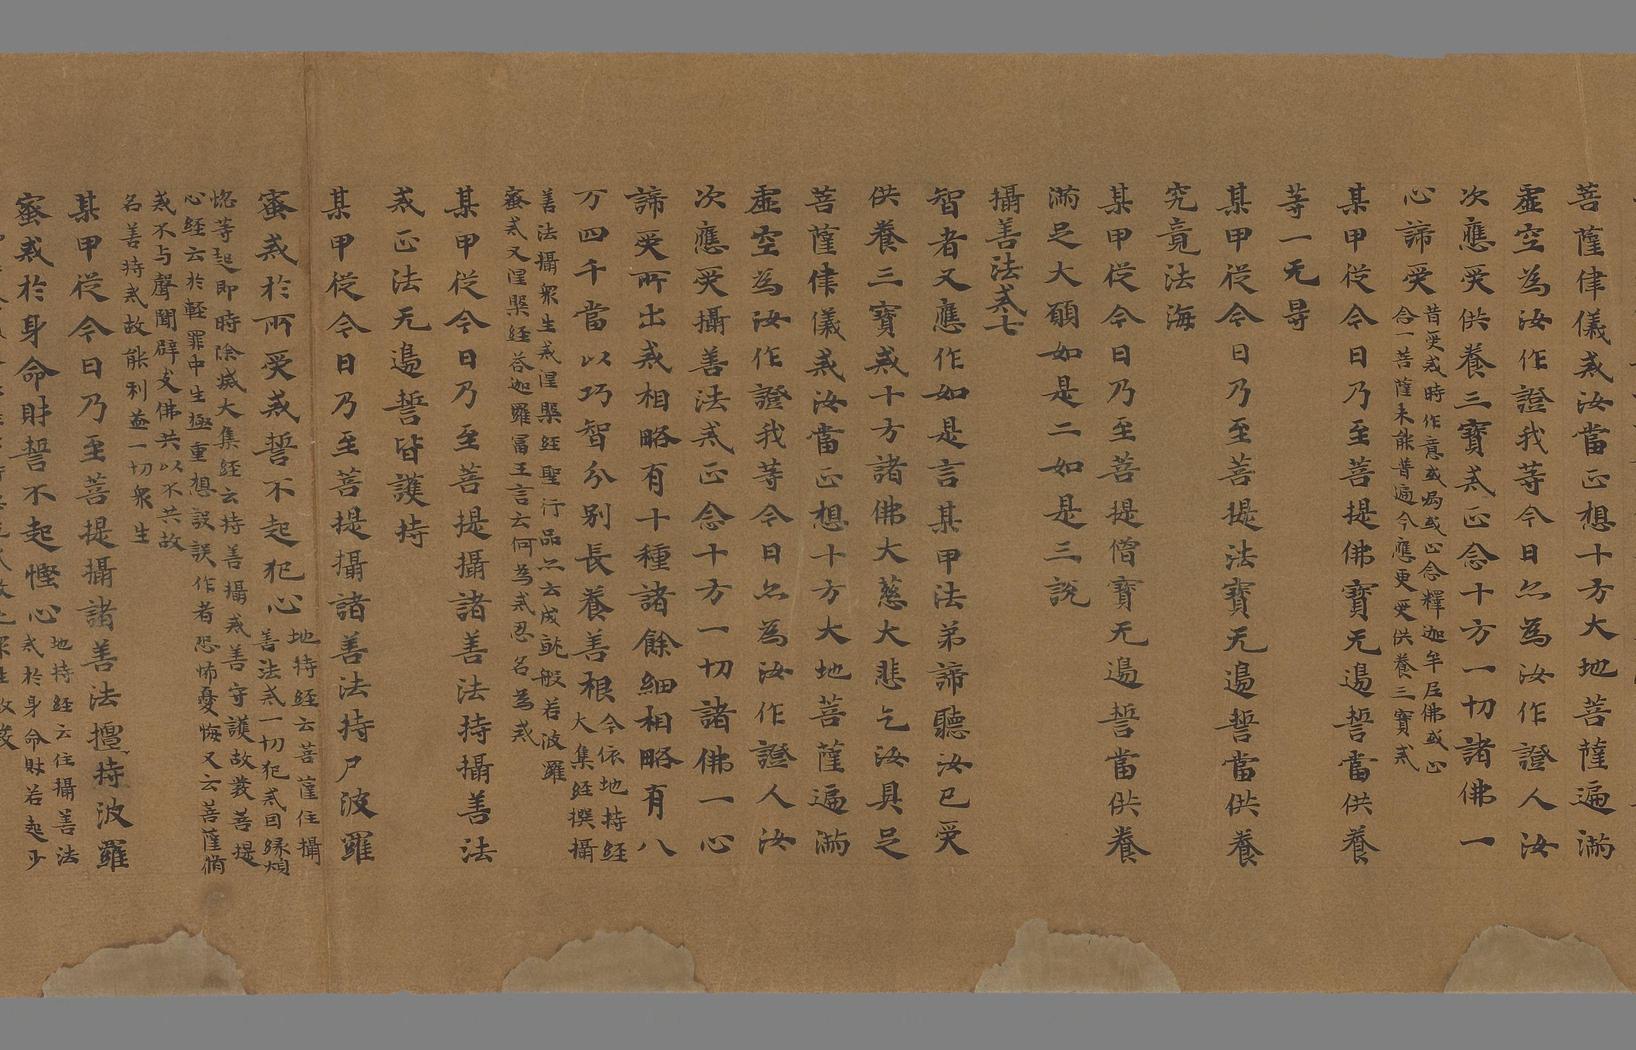 菩薩律儀戒汝當正想十方大地菩薩遍滿
虛空為汝作證我等今日亦為汝作證人汝
次應受供養三寶戒正念十方一切諸佛一
心諦受
昔受戒時作意或為或正念釋迦牟尼佛或正
念一菩薩未能普遍今應更受供養三寶戒
某甲從今日乃至菩提佛寶无邊誓當供養
等一无㝵
某甲從今日乃至菩提法寶无邊誓當供養
究竟法海
某甲從今日乃至菩提僧寶无邊誓當供養
滿足大願如是二如是三說
攝善法戒七
智者又應作如是言某甲法弟諦聽汝已受
供養三寶戒十方諸佛大慈大悲乞汝具足
菩薩律儀戒汝當正想十方大地菩薩遍滿
虛空為汝作證我等今日亦為汝作證人汝
次應受攝善法戒正念十方一切諸佛一心
諦受所出戒相略有十種諸餘細相略有八
万四千當以巧智分別長養善根
今依地持經
大集經撰攝
善法攝衆生戒涅槃經聖行品亦云成就般若波羅
蜜戒又涅槃經答迦羅冨王言云何為戒忍名為戒
某甲從今日乃至菩提攝諸善法持攝善法
戒正法无邊誓皆護持
某甲從今日乃至菩提攝諸善法持尸波羅
蜜戒於所受戒誓不起犯心
地持經云菩薩住攝
善法戒一切犯戒因緣煩
惚等起即時除滅大集經云持善攝戒善守護故發菩提
心經云於輕罪中生極重想設誤作者恐怖憂悔又云菩薩脩
戒不与聲聞辟支佛共以不共故
名善持戒故能利益一切衆生
某甲從今日乃至菩提攝諸善法擅持波羅
蜜戒於身命財誓不起慳心
地持經云住攝善法
戒於身命財若起少